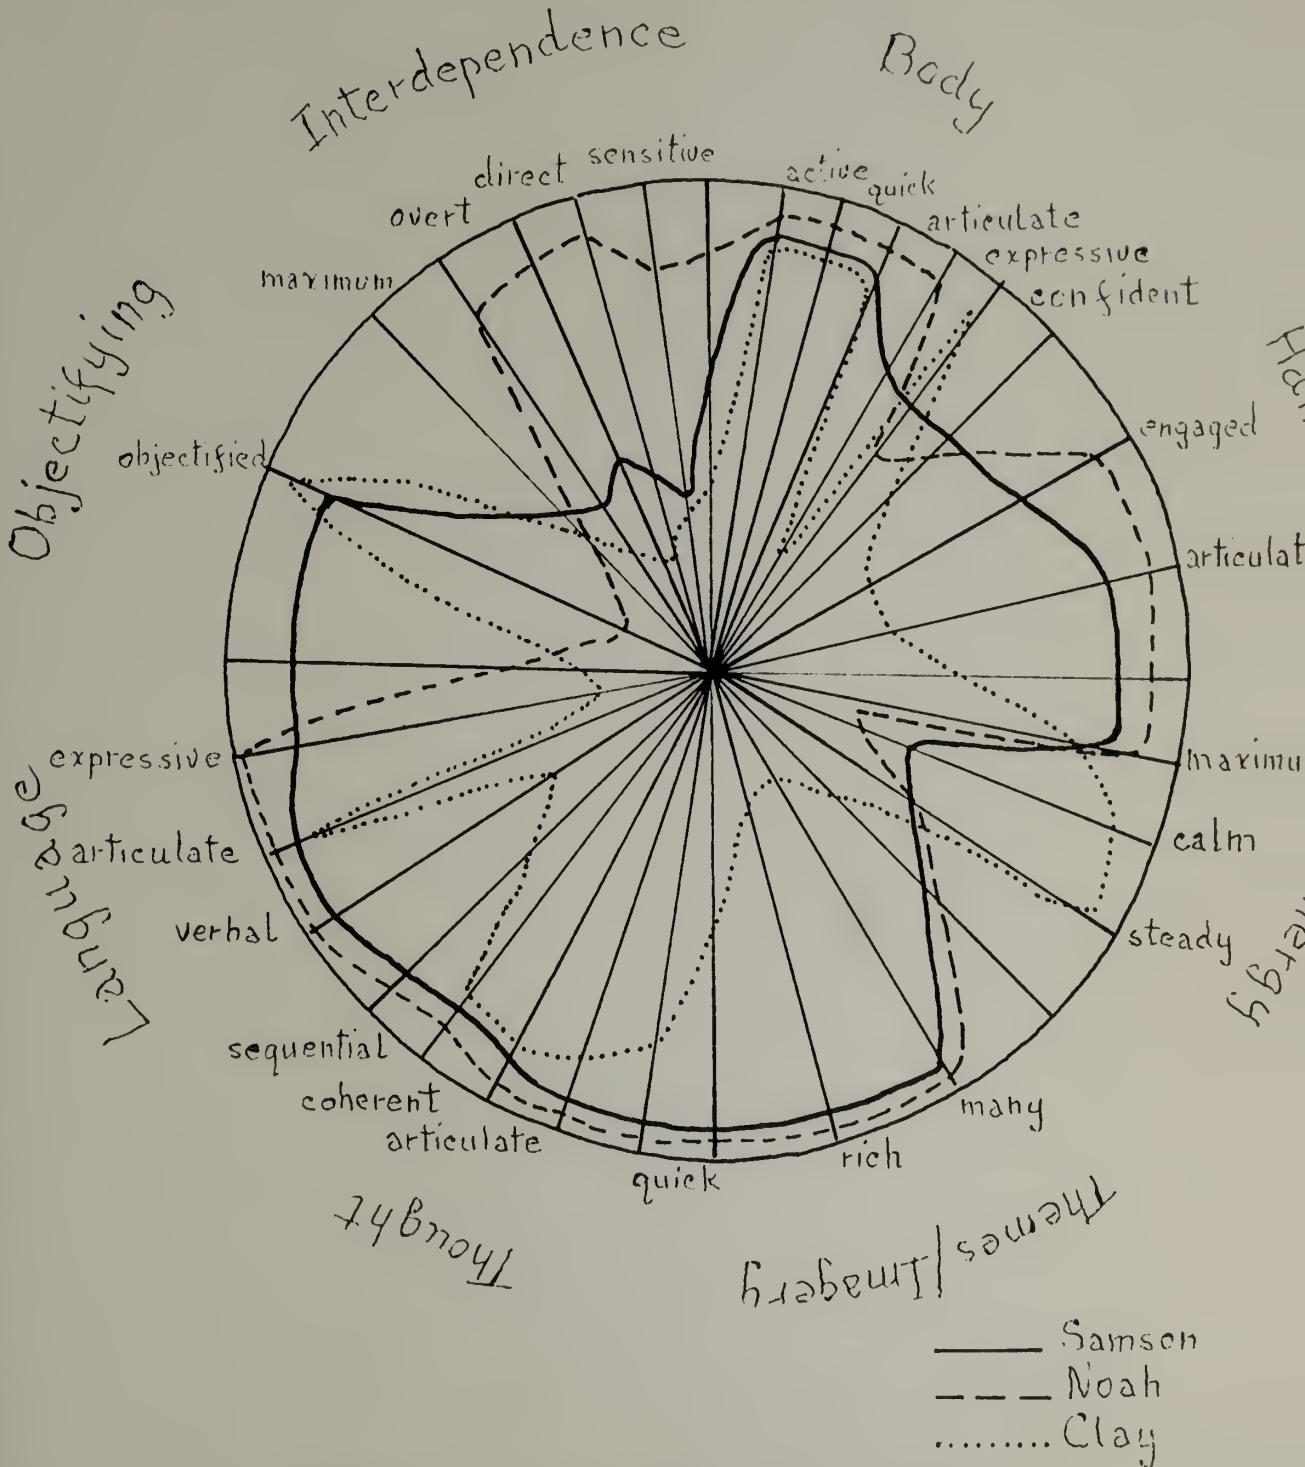 Interdependence
Body
Objectifying
Language
Thought
Themes/Imagery
sensitive
direct
overt
maximum
objectified
active
quick
articulate
expressive
confident
engaged
articulat
maximu
calm
steady
many
rich
quick
articulate
coherent
sequential
verbal
articulate
expressive
Samson
Noah
Clay